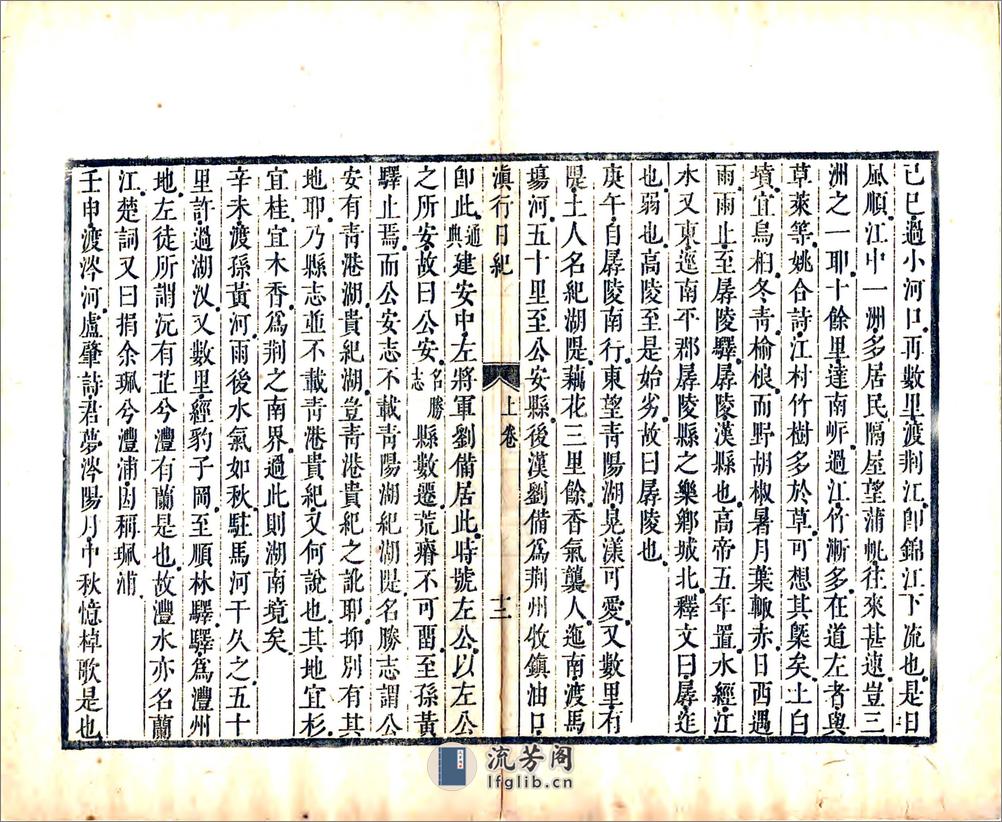 己巳過小河口再數里渡荆江卽錦江下流也是日
風順江中一洲多居民隔屋望蒲帆往來甚遠豈三
洲之一耶十餘里達南岍過江竹漸多在道左者與
草萊等姚合詩江村竹樹多於草可想其槩矣土白
墳宜烏桕冬青榆桹而野胡椒暑月葉輙赤日西遇
雨雨止至孱陵驛孱陵漢縣也高帝五年置水經江
水又東逕南平郡孱陵縣之樂鄉城北釋文曰孱迮
也弱也高陵至是始劣故曰孱陵也
庚午自孱陵南行東望青陽湖晃漾可愛又數里有
隄土人名紀湖隄藕花三里餘香氣襲人迤南渡馬
塲河五十里至公安縣後漢劉備爲荆州牧鎮油口
滇行日紀 上卷 十二
卽此通典建安中左將軍劉備居此時號左公以左公
之所安故曰公安名勝志縣數遷荒瘠不可畱至孫黃
驛止焉而公安志不載青陽湖紀湖隄名勝志謂公
安有青港湖貴紀湖豈青港貴紀之訛耶抑別有其
地耶乃縣志並不載青港貴紀又何說也其地宜杉
宜桂宜木香爲荆之南界過此則湖南境矣
辛未渡孫黃河雨後水氣如秋駐馬河干久之五十
里許過湖汊又數里經豹子岡至順林驛驛爲澧州
地左徒所謂沅有芷兮澧有蘭是也故澧水亦名蘭
江楚詞又曰捐余珮兮澧浦因稱珮浦
壬申渡涔河盧肇詩君夢涔陽月中秋憶棹歌是也
流芳阁
lfglib.cn